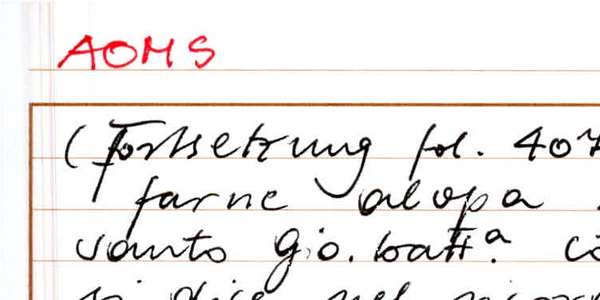 AOMS
(Fortsetzung fol. 407
farne alopa
santo Gio. batt.ª
si dice nel